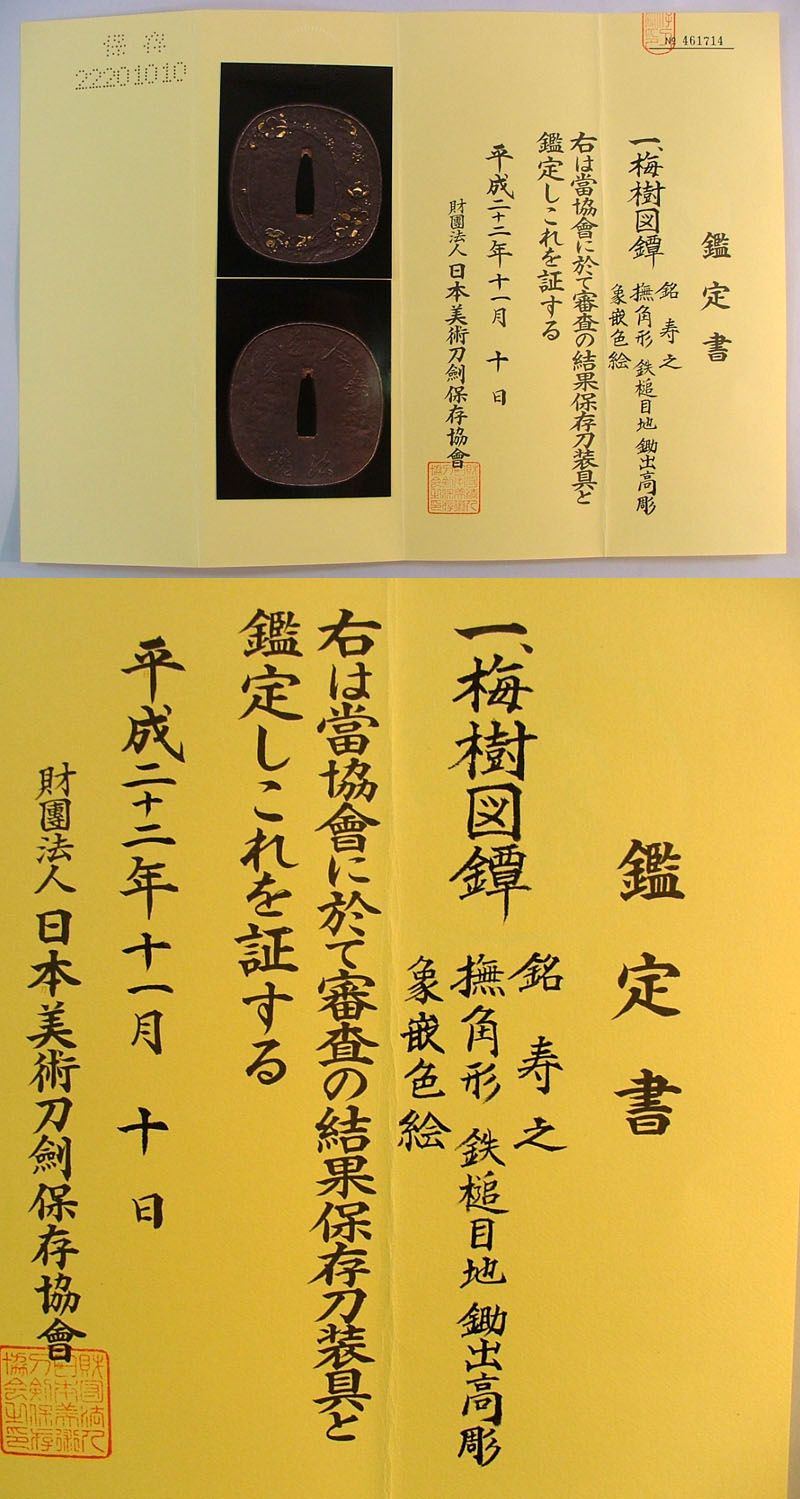 保存
22201010
№ 461714
鑑定書
一、梅樹図鐔
銘 寿之
撫角形 鉄槌目地 鋤出高彫
象嵌色絵
右は當協會に於て審査の結果保存刀装具と
鑑定しこれを証する
平成二十二年十一月 十日
財團法人 日本美術刀劍保存協會
鑑定書
一、梅樹図鐔
銘 寿之
撫角形 鉄槌目地 鋤出高彫
象嵌色絵
右は當協會に於て審査の結果保存刀装具と
鑑定しこれを証する
平成二十二年十一月 十日
財團法人 日本美術刀劍保存協會